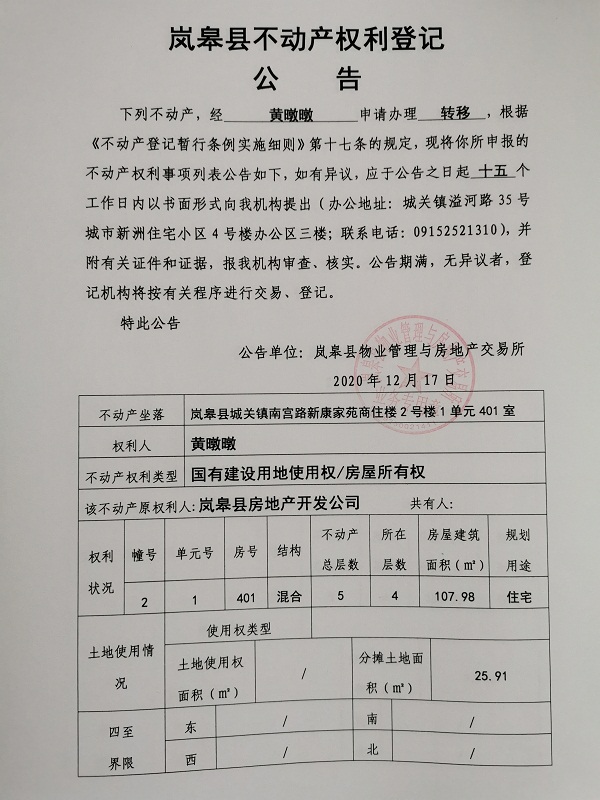 岚皋县不动产权利登记
公 告
下列不动产，经 黄暾暾 申请办理 转移，根据
《不动产登记暂行条例实施细则》第十七条的规定，现将你所申报的
不动产权利事项列表公告如下，如有异议，应于公告之日起 十五 个
工作日内以书面形式向我机构提出（办公地址：城关镇溢河路 35 号
城市新洲住宅小区 4 号楼办公区三楼；联系电话：09152521310），并
附有关证件和证据，报我机构审查、核实。公告期满，无异议者，登
记机构将按有关程序进行交易、登记。
特此公告
公告单位：岚皋县物业管理与房地产交易所
2020 年 12 月 17 日
不动产坐落 岚皋县城关镇南宫路新康家苑商住楼 2 号楼 1 单元 401 室
权利人 黄暾暾
不动产权利类型 国有建设用地使用权/房屋所有权
该不动产原权利人：岚皋县房地产开发公司 共有人：
权利状况 幢号 单元号 房号 结构 不动产总层数 所在层数 房屋建筑面积（㎡） 规划用途
2 1 401 混合 5 4 107.98 住宅
土地使用情况 使用权类型
土地使用权面积（㎡） / 分摊土地面积（㎡） 25.91
四至界限 东 / 南 /
西 / 北 /